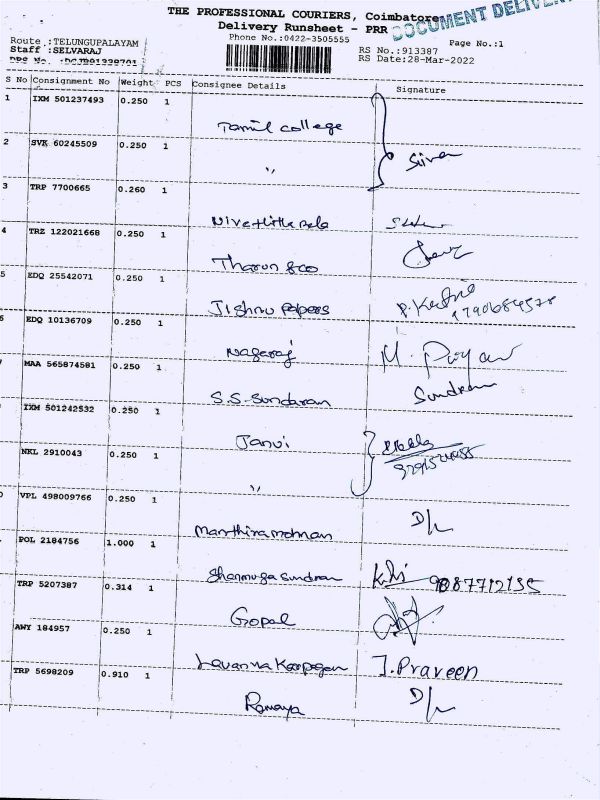 THE PROFESSIONAL COURIERS, Coimbatore
DOCUMENT DELIVER
Delivery Runsheet - PRR
Phone No.:0422-3505555
Page No.:1
Route :TELUNGUPALAYAM
Staff :SELVARAJ
RS No.:913387
DRS No. :DCJB91338701
RS Date:28-Mar-2022
S No Consignment No Weight PCS Consignee Details Signature
1 IXM 501237493 0.250 1
Tamil college
2 SVK 60245509 0.250 1
" Siva
3 TRP 7700665 0.260 1
4 TRZ 122021668 0.250 1
Tharun &co
5 EDQ 25542071 0.250 1
Jishnu Papers
6 EDQ 10136709 0.250 1
Nagaraj M.
MAA 565874581 0.250 1
S.S. Sundaram Sundram
IXM 501242532 0.250 1
Janvi
NKL 2910043 0.250 1
"
VPL 498009766 0.250 1
Manthiramohnan D/L
POL 2184756 1.000 1
Shanmuga Sundram 9087712135
TRP 5207387 0.314 1
Gopal
AWY 184957 0.250 1
J.Praveen
TRP 5698209 0.910 1
Ramaya D/L